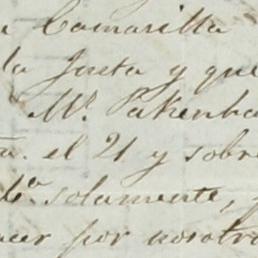 a Camarilla
la Junta y que
Mr. Pakenha
ta. el 21 y sobre
do. solamente, y
cer por nosotro